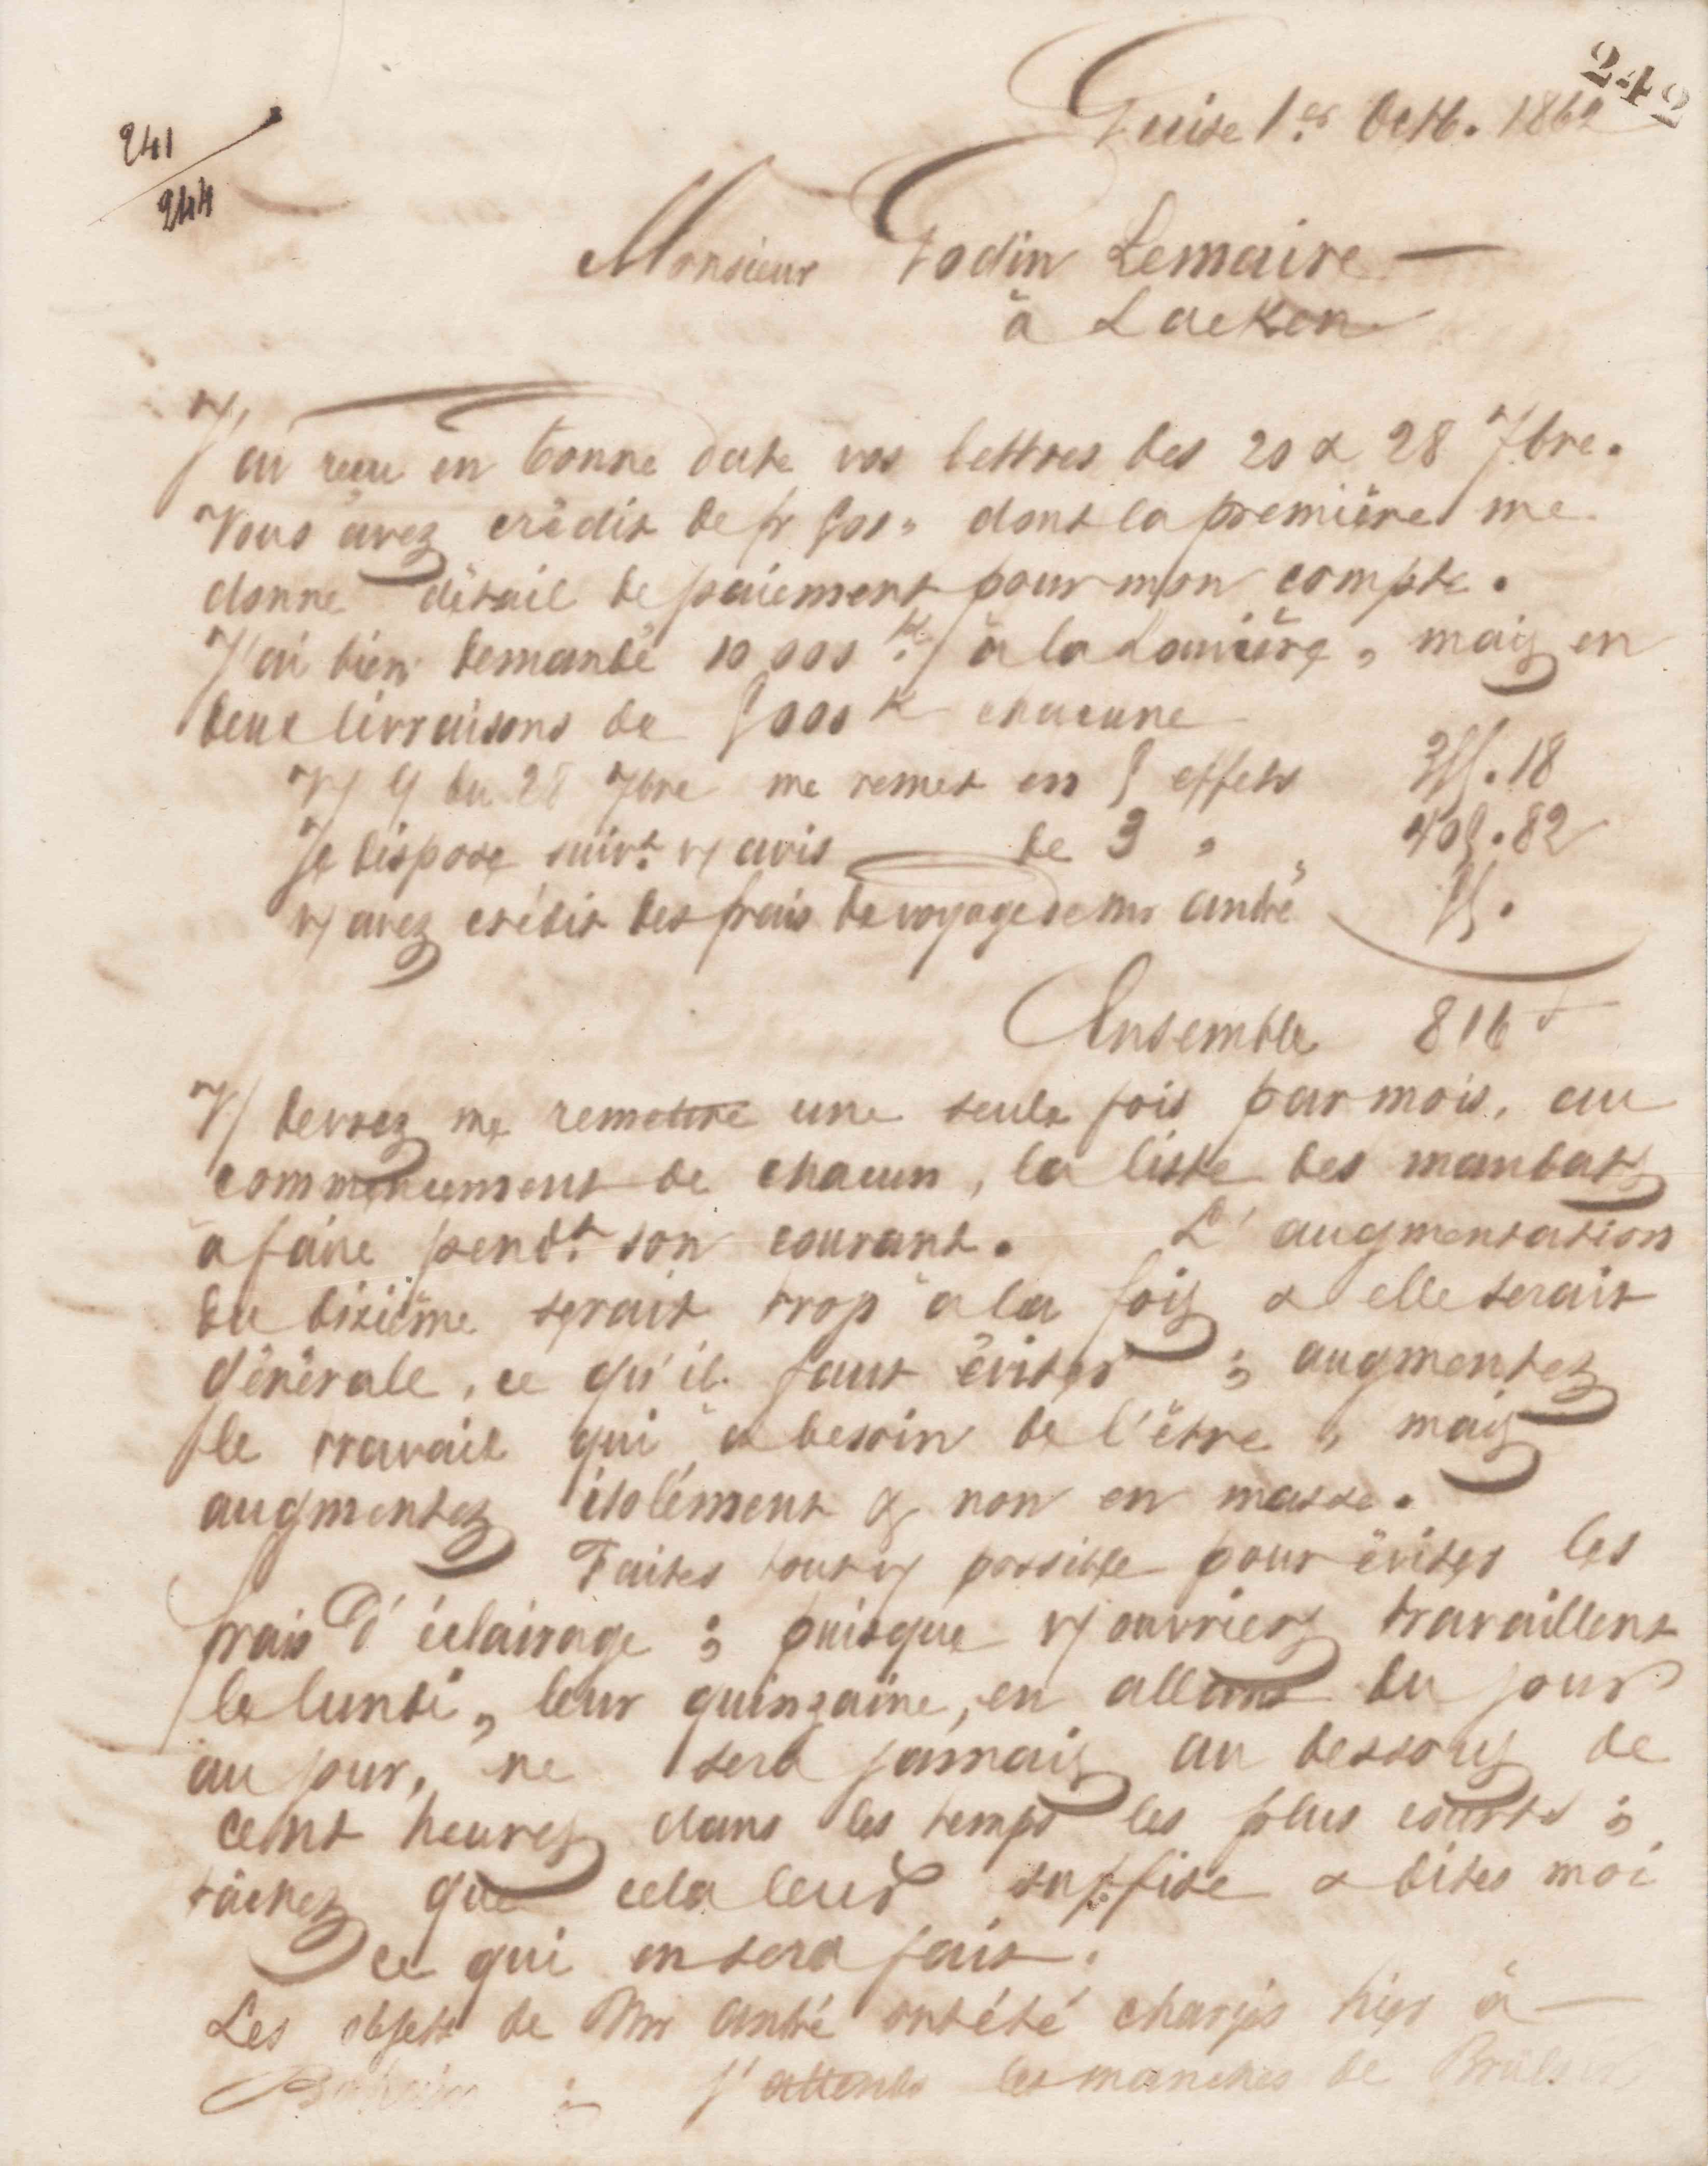 242
Guise 1er Octb. 1862
241
244
Monsieur Godin Lemaire
à Laeken
J'ai reçu en bonne date vos lettres des 20 & 28 7bre.
Vous avez crédit de fr 505 " dont la première me
donne détail de paiement pour mon compte.
J'ai bien demandé 10 000 k. à la Louvière, mais en
deux livraisons de 5000 k chacune
V/ du 28 7bre me remet en 5 effets 355.18
Je dispose suivt. v/ avis de 3 " 405.82
v/ avez crédit des frais de voyage de mr andré 55.
Ensemble 816
V/ devrez me remettre une seule fois par mois, au
commencement de chacun, la liste des mandats
à faire pendt. son courant. L'augmentation
du dixième serait trop à la fois & elle serait
générale, ce qu'il faut éviter ; augmentez
le travail qui a besoin de l'être, mais
augmentez isolément & non en masse.
Faites tout v/ possible pour éviter les
frais d'éclairage ; puisque v/ ouvriers travaillent
le lundi, leur quinzaine, en allant du jour
au jour, ne sera jamais au dessous de
cent heures dans les temps les plus courts ;
tâchez que cela leur suffise & dites moi
ce qui en sera fait.
Les objets de Mr andré ont été chargés hier à
; j'attends les manches de